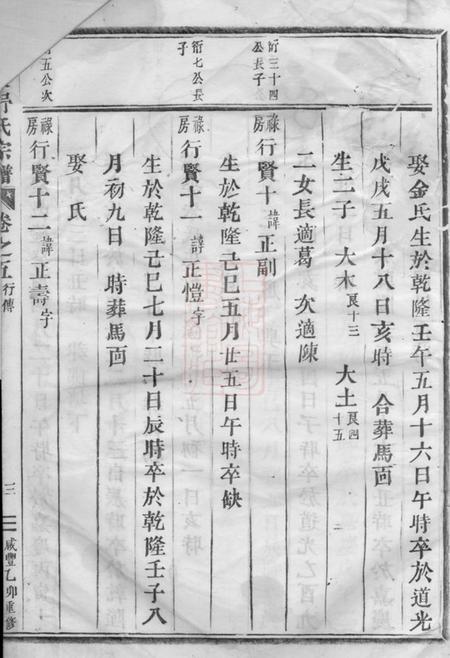 娶金氏生於乾隆壬午五月十六日午時卒於道光
戊戌五月十八日亥時 合葬馬鬣
生二子 大木艮十三 大土艮四十五
二女長適葛 次適陳
衍三十四公長子
祿房行賢十諱正副
生於乾隆己巳五月廿五日午時卒缺
衍七公長子
祿房行賢十一諱正愷字
生於乾隆己巳七月二十日辰時卒於乾隆壬子八
月初九日 時葬馬鬣
娶 氏
五公次子
祿房行賢十二諱正壽字
氏宗譜
卷之五行傳
三
咸豐乙卯重修